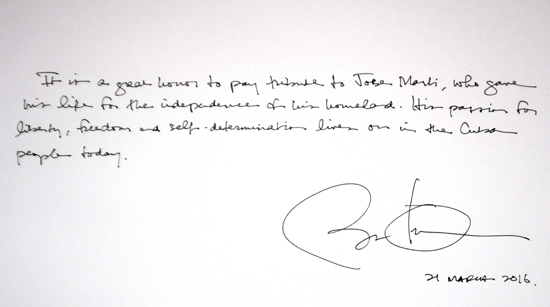 It is a great honor to pay tribute to Jose Marti, who gave
his life for the independence of his homeland. His passion for
liberty, freedom and self-determination lives on in the Cuban
people today.
21 MARCH 2016.